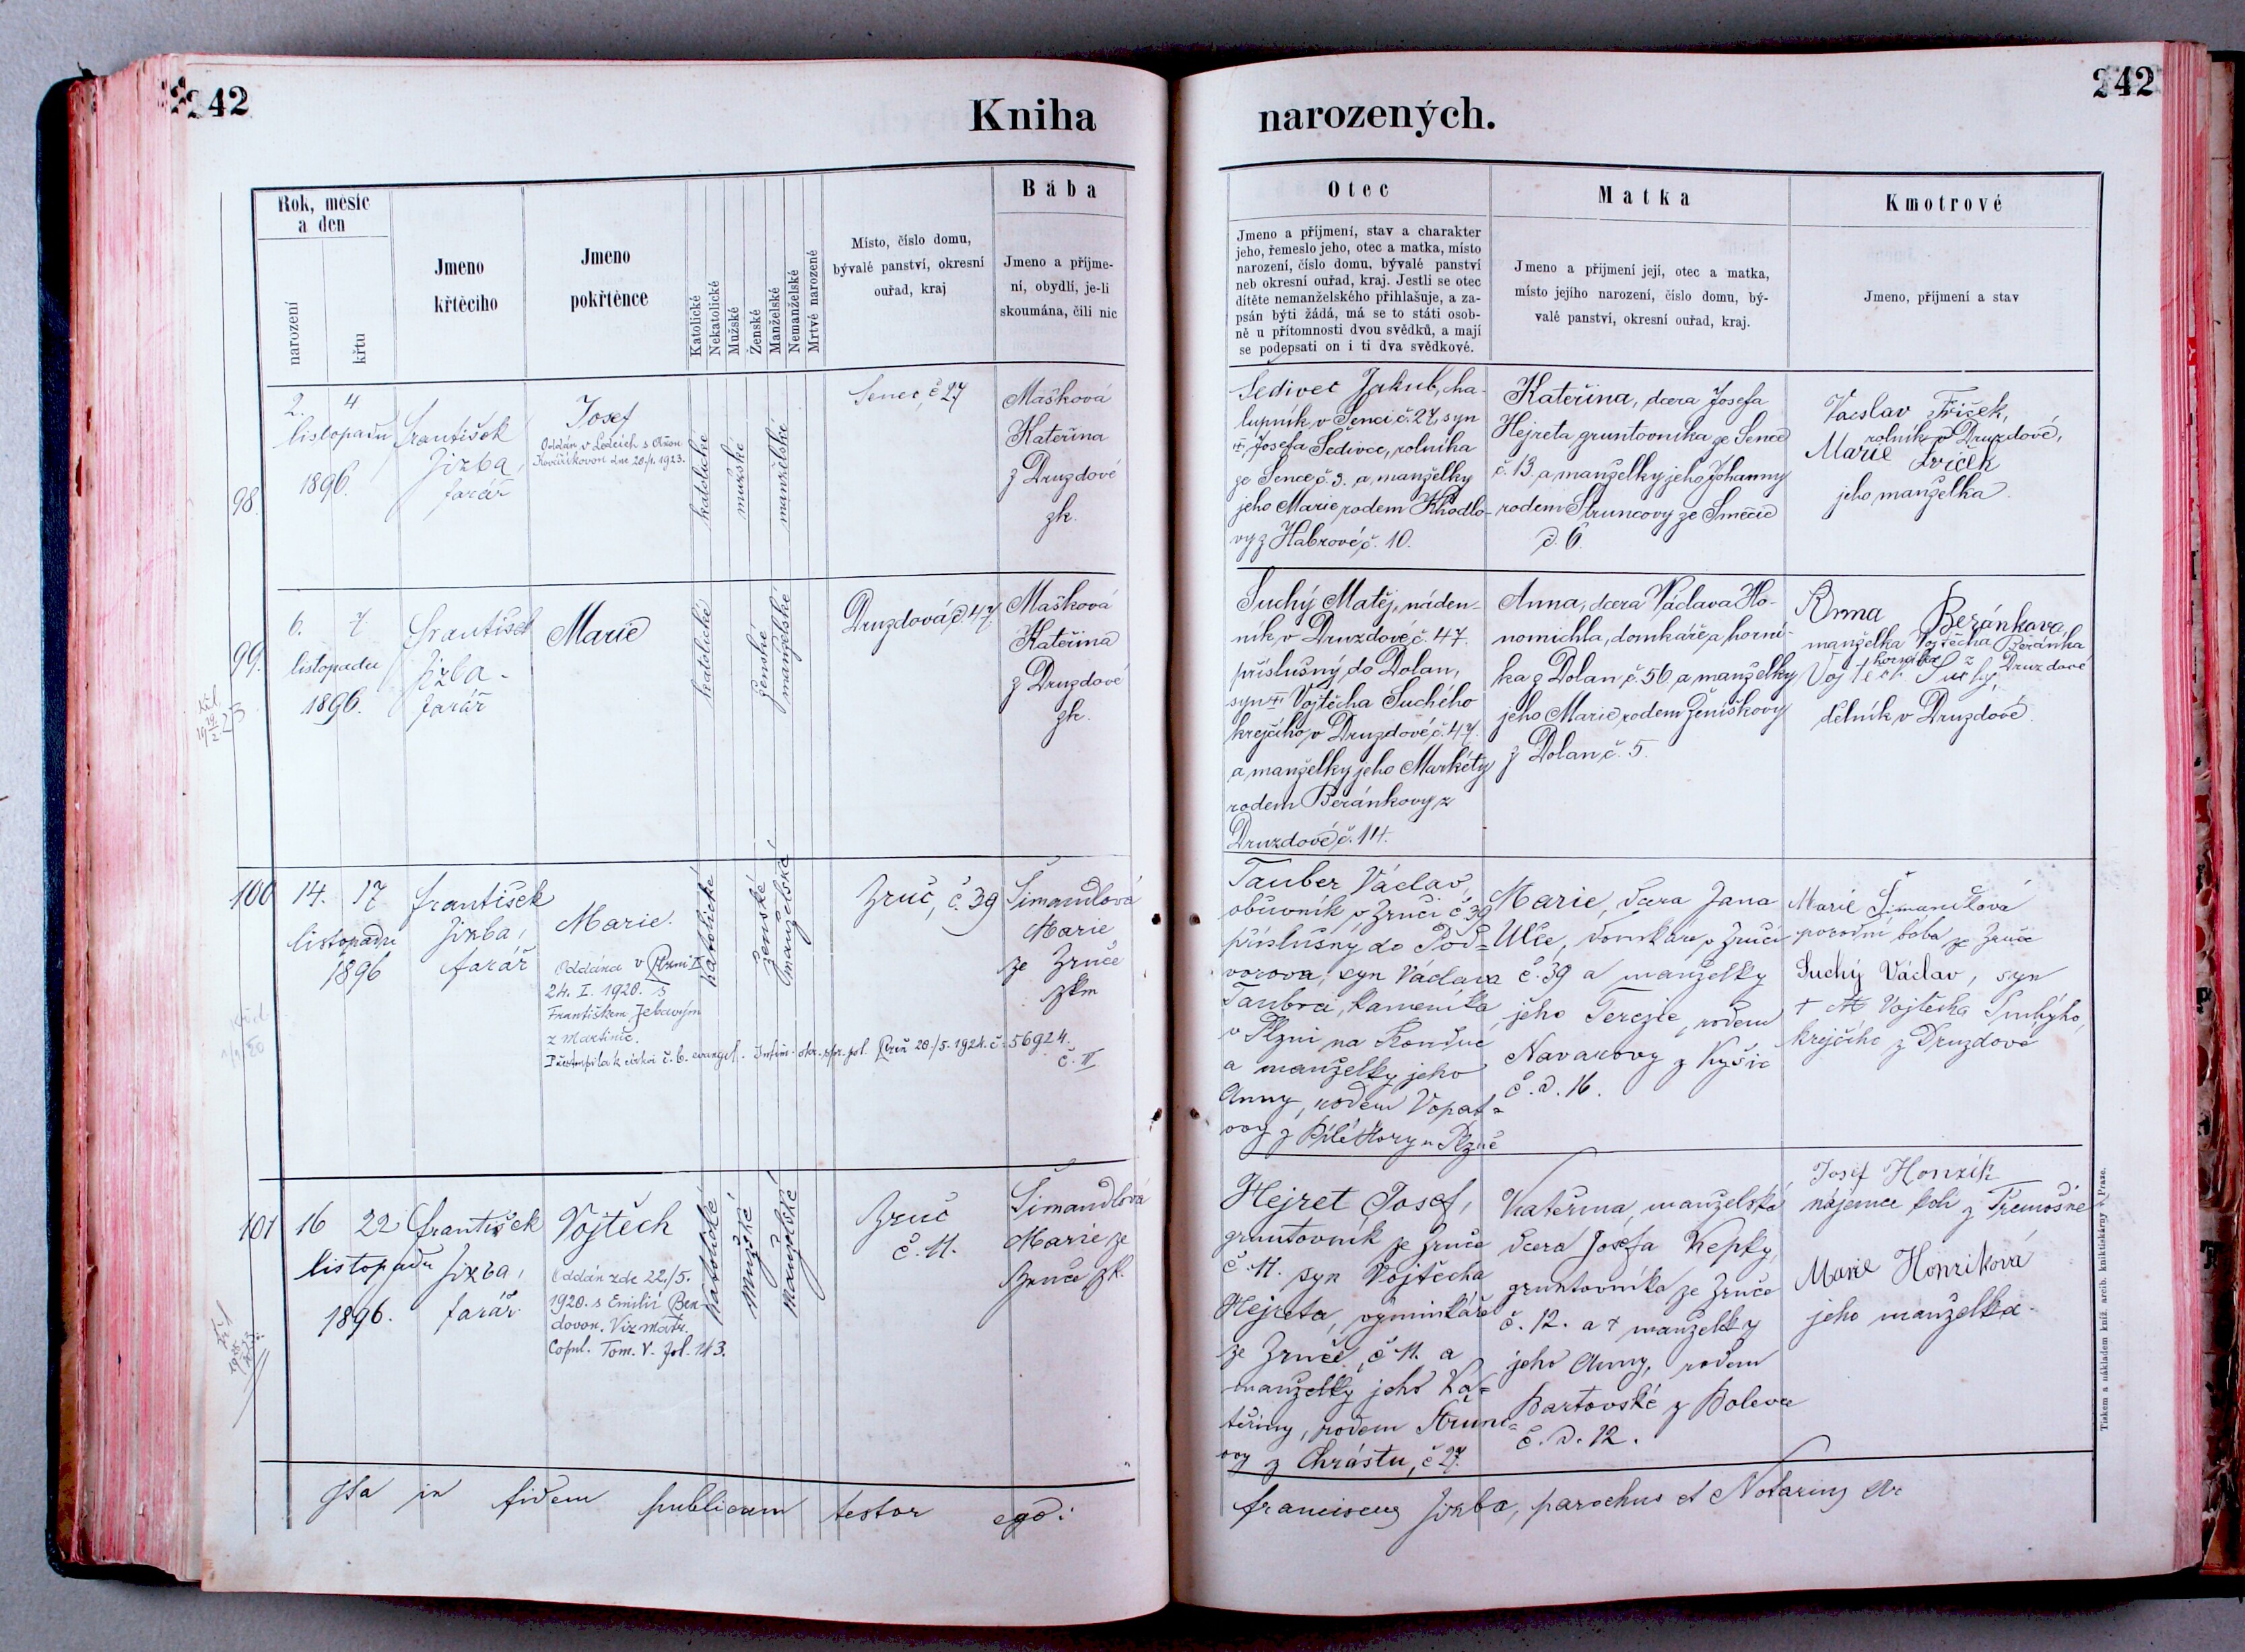 242
Kniha
narozených.
242
Rok, měsíc
a den
narození
křtu
Jmeno
křtěcího
Jmeno
pokřtěnce
Katolické
Nekatolické
Mužské
Ženské
Manželské
Nemanželské
Mrtvé narozené
Místo, číslo domu,
bývalé panství, okresní
ouřad, kraj
Bába
Jmeno a příjme-
ní, obydlí, je-li
skoumána, čili nic
Otec
Jmeno a příjmení, stav a charakter
jeho, řemeslo jeho, otec a matka, místo
narození, číslo domu, bývalé panství
neb okresní ouřad, kraj. Jestli se otec
dítěte nemanželského přihlašuje, a za-
psán býti žádá, má se to státi osob-
ně u přítomnosti dvou svědků, a mají
se podepsati on i ti dva svědkové.
Matka
Jmeno a přijmení její, otec a matka,
místo jejího narození, číslo domu, bý-
valé panství, okresní ouřad, kraj.
Kmotrové
Jmeno, příjmení a stav
98.
2. 4
listopadu
1896.
František
Jizba,
farář
Josef
Oddán v Ledcích s
dne 20./1. 1923.
katolické
mužské
manželské
Senec, č 27
Mašková
Kateřina
z Druzdové
zk.
Sedivec Jakub, cha-
lupník v Senci č. 27, syn
† Josefa Šedivce, rolníka
ze Sence č. 3. a manželky
jeho Marie rodem Khodlo-
vy z Habrové č. 10.
Kateřina, dcera Josefa
Hejreta gruntovníka ze Sence
č. 13. a manželky jeho Johanny
rodem Štruncovy ze Smědčic
č. 6.
Vacslav Fricek,
rolník v Druzdové,
Marie Fricek
jeho manželka.
99.
6. 7
listopadu
1896.
František
Jizba-
farář
Marie
katolické
ženské
manželské
Druzdová, č. 47
Mašková
Kateřina
z Druzdové
zk.
Suchý Matěj, náden-
ník v Druzdové č. 47.
příslušný do Dolan,
syn † Vojtěcha Suchého
krejčího v Druzdové, č. 47.
a manželky jeho Markéty
rodem Beránkovy z
Druzdové č. 14.
Anna, dcera Václava Ho-
nomichla, domkáře a horní-
ka z Dolan č. 56. a manželky
jeho Marie rodem Ženíškovy
z Dolan č. 5.
Anna Beránkavá,
manželka Vojtěcha Beránka
horníka z Druzdové
Vojtěch Suchý,
dělník v Druzdové.
100
14. 17
listopadu
1896
František
Jizba,
farář
Marie.
Oddána v Plzni II
24. I. 1920. s
Františkem Jebavým
z Martinic.
Přestoupila k církvi č. b. evangel. 20./5. 1924. č. 56924.
č. II
katolické
ženské
manželské
Zruč, č. 39
Šimandlová
Marie
ze Zruče
zkm
Tauber Václav,
obuvník v Zruči č 39
příslušný do Pod-
vorova, syn Václava
Taubra, kameníka
v Plzni na Rondelu
a manželky jeho
Anny, rodem Vopat-
ovy z Bílé Hory u Plzně
Marie, dcera Jana
Ulče, domkáře v Zruči
č. 39 a manželky
jeho Terezie, rodem
Navarovy z Kyšic
č. d. 16.
Marie Šimandlová
porodní bába ze Zruče
Suchý Václav, syn
† Vojtěcha Suchýho,
krejčího z Druzdové
101
16 22
listopadu
1896.
František
Jizba,
farář.
Vojtěch
Oddán zde 22./5.
1920. s Emilií Ben-
dovou. Viz matr.
Copul. Tom. V. fol. 143.
katolické
mužské
manželské
Zruč
č. 11.
Šimandlová
Marie ze
Zruče zk.
Hejret Josef,
gruntovník ze Zruče
č. 11. syn Vojtěcha
Hejreta, výminkáře
ze Zruče, č 11. a
manželky jeho Ka-
teřiny, rodem Štrunc-
ovy z Chrástu, č 27.
Kateřina, manželská
dcera Josefa Kepky,
gruntovníka ze Zruče
č. 12. a † manželky
jeho Anny, rodem
Bartovské z Bolevce
č. d. 12.
Josef Honzík
nájemce polí z Třemošné
Marie Honzíková
jeho manželka.
Ita in fidem publicam testor ego:
Franciscus Jizba, parochus et Notarius
Tiskem a nákladem kníž. arcib. knihtiskárny v Praze.